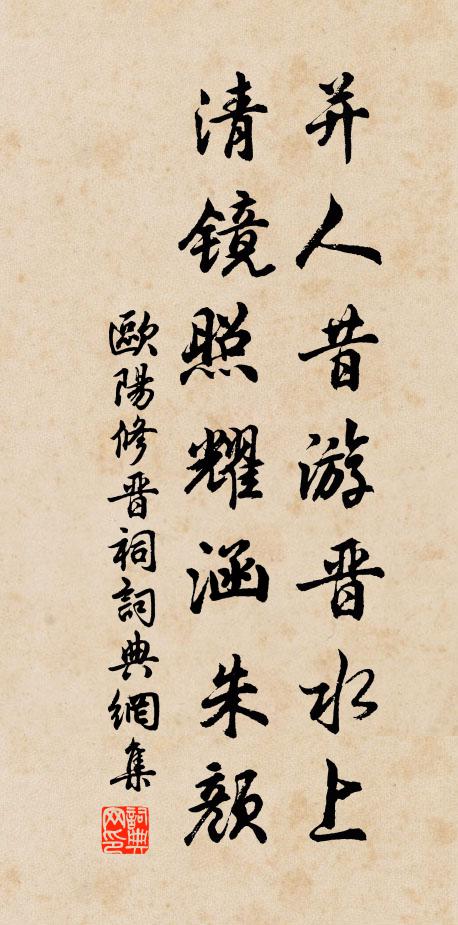 并人昔游晋水上
清镜照耀涵朱颜
歐陽修晋祠詞典網集
詞典网印